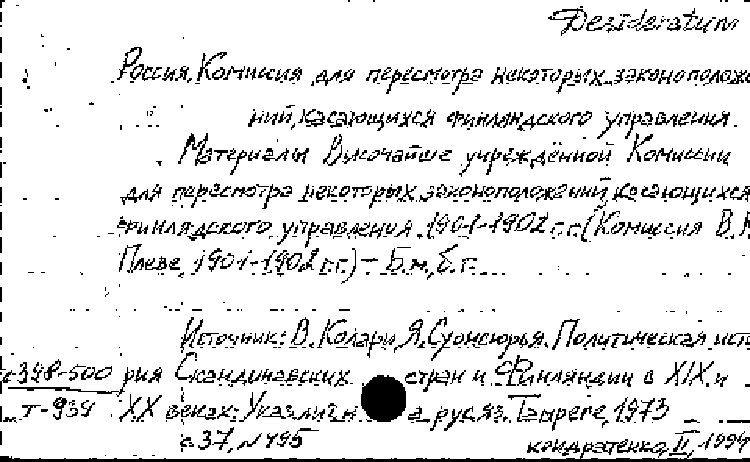 Desideratum
Россия. Комиссия для пересмотра некоторых законополож
ний, касающихся финляндского управления.
Материалы Высочайше учреждённой Комиссии
для пересмотра некоторых законоположений, касающихся
финляндского управления. 1901-1902 г.г. (Комиссия В.К.
Плеве, 1901-1902 г.г.) – Б.м., б.г.
Источник: В. Колари, Я. Суонсюрья. Политическая исто
с348-500 рия Скандинавских стран и Финляндии в XIX и
т-934 XX веках: Указ. лит. на рус. яз. Тампере, 1973
с 37, N 495
кондратенко, II, 1994